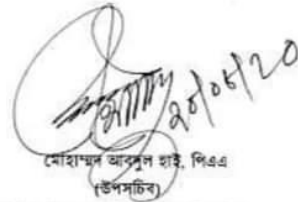 ২০/০৮/২০
মোহাম্মদ আবদুল হাই, পিএএ
(উপসচিব)